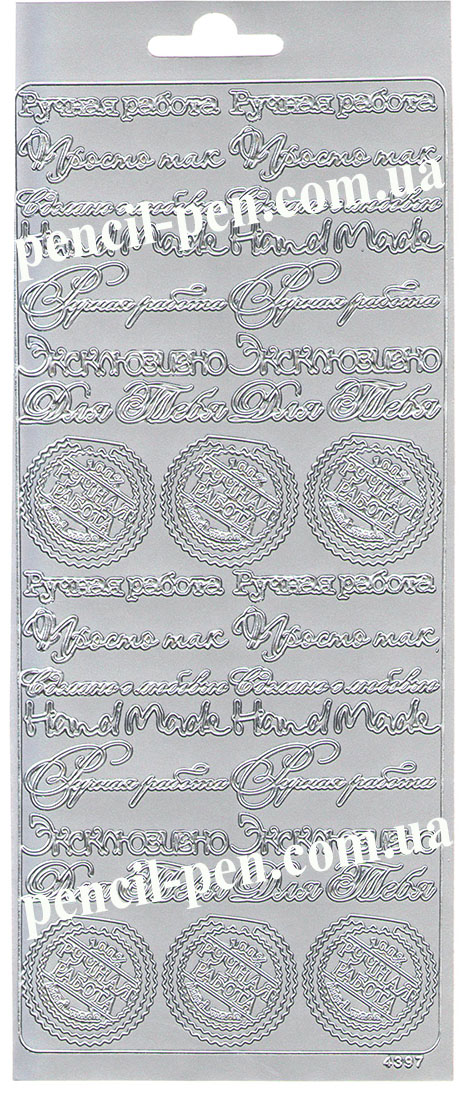 Ручная работа Ручная работа
Просто так Просто так
Сделано с любовью Сделано с любовью
pencil-pen.com.ua
Hand Made Hand Made
Ручная работа Ручная работа
Эксклюзивно Эксклюзивно
Для Тебя Для Тебя
100% 100% 100%
РУЧНАЯ РУЧНАЯ РУЧНАЯ
РАБОТА РАБОТА РАБОТА
Ручная работа Ручная работа
Просто так Просто так
Сделано с любовью
Hand Made Hand Made
Ручная работа Ручная работа
Эксклюзивно Эксклюзивно
pencil-pen.com.ua
Для Тебя Для Тебя
100% 100% 100%
РУЧНАЯ РУЧНАЯ РУЧНАЯ
РАБОТА РАБОТА РАБОТА
4397